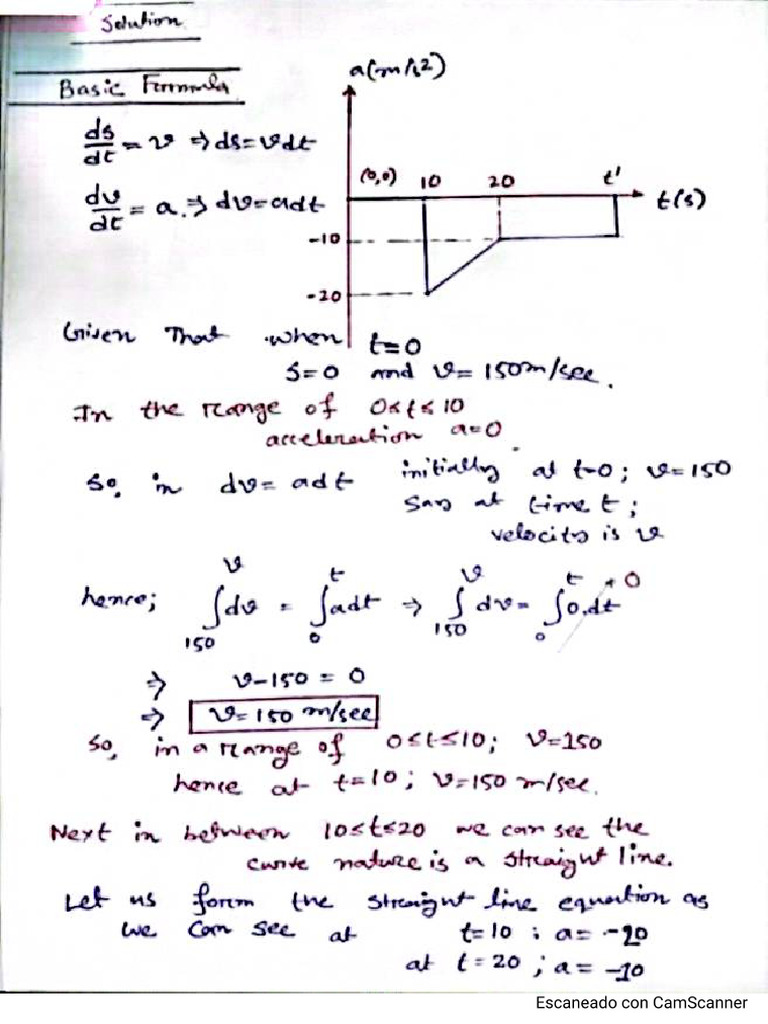 Solution
Basic Formula
a(m/s²)
ds/dt = v ⇒ ds = vdt
dv/dt = a ⇒ dv = adt
(0,0) 10 20 t' t(s)
-10
-20
Given That when t=0
s=0 and v= 150m/sec.
In the range of 0≤t≤10
acceleration a=0.
So, in dv= adt initially at t=0; v=150
say at time t;
velocity is v
hence; ∫₁₅₀ᵛ dv = ∫₀ᵗ adt ⇒ ∫₁₅₀ᵛ dv = ∫₀ᵗ 0.dt → 0
⇒ v-150 = 0
⇒ v= 150 m/sec
So, in a range of 0≤t≤10; v=150
hence at t=10; v=150 m/sec.
Next in between 10≤t≤20 we can see the
curve nature is a straight line.
Let us form the straight line equation as
we can see at t=10 ; a= -20
at t=20 ; a= -10
Escaneado con CamScanner